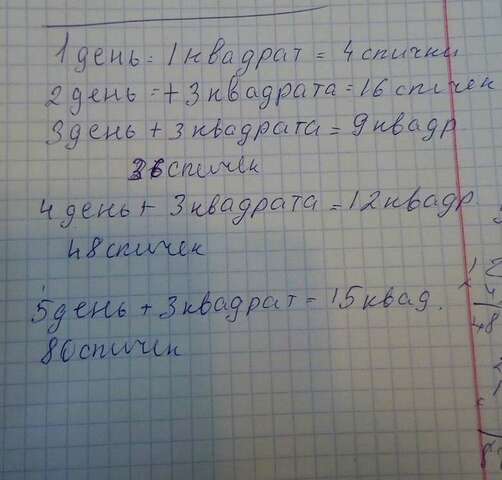 1 день = 1 квадрат = 4 спички
2 день = + 3 квадрата = 16 спичек
3 день + 3 квадрата = 9 квадр
36 спичек
4 день + 3 квадрата = 12 квадр.
48 спичек
5 день + 3 квадрат = 15 квад.
80 спичек
12
4
48